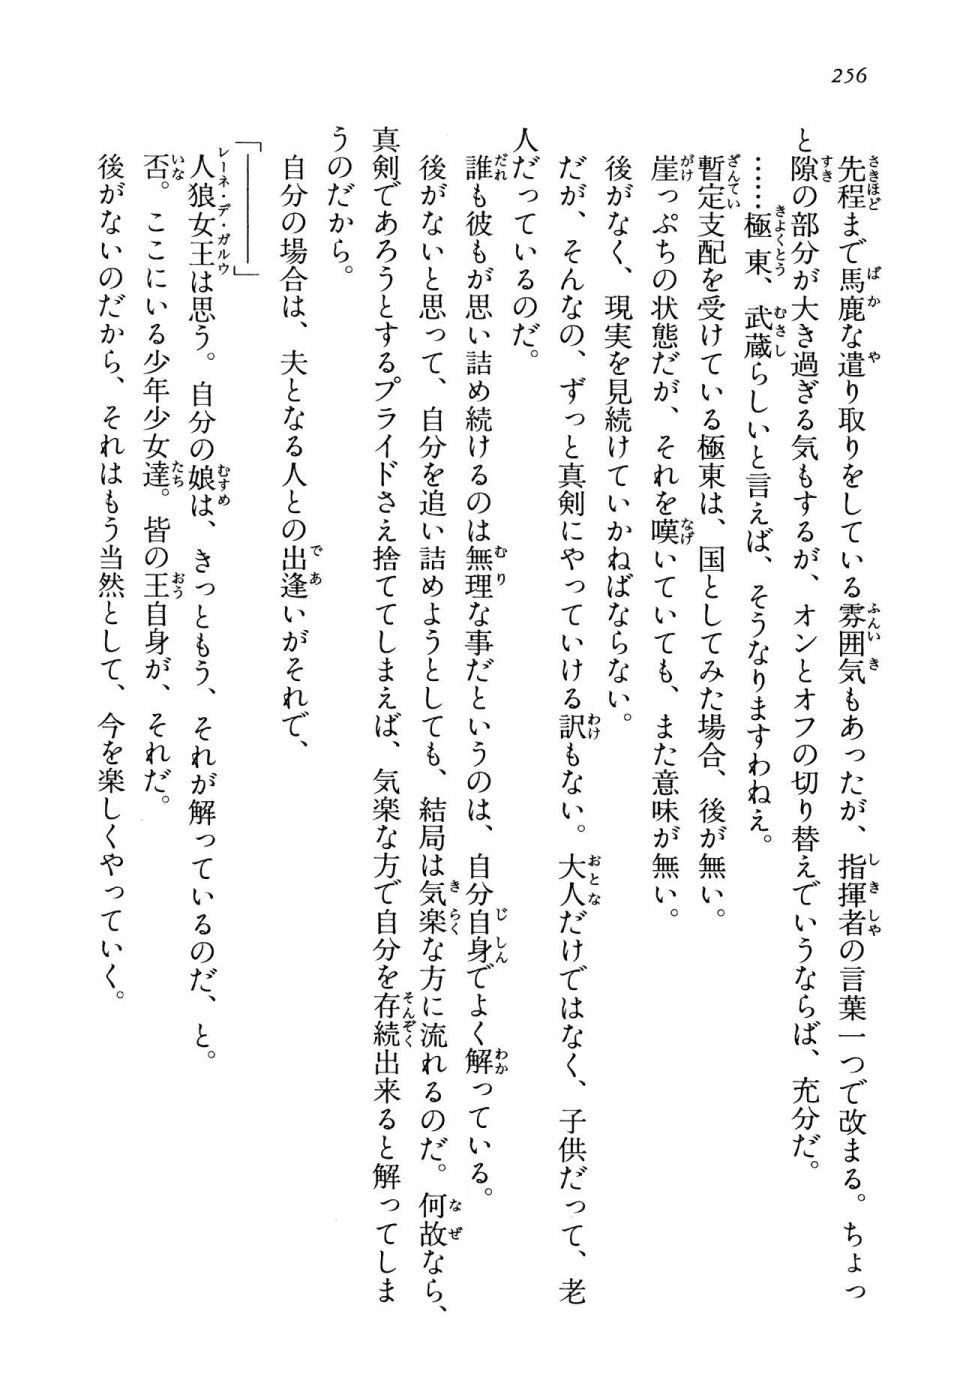 256
先程まで馬鹿な遣り取りをしている雰囲気もあったが、指揮者の言葉一つで改まる。ちょっ
と隙の部分が大き過ぎる気もするが、オンとオフの切り替えでいうならば、充分だ。
……極東、武蔵らしいと言えば、そうなりますわねえ。
暫定支配を受けている極東は、国としてみた場合、後が無い。
崖っぷちの状態だが、それを嘆いていても、また意味が無い。
後がなく、現実を見続けていかねばならない。
だが、そんなの、ずっと真剣にやっていける訳もない。大人だけではなく、子供だって、老
人だっているのだ。
誰も彼もが思い詰め続けるのは無理な事だというのは、自分自身でよく解っている。
後がないと思って、自分を追い詰めようとしても、結局は気楽な方に流れるのだ。何故なら、
真剣であろうとするプライドさえ捨ててしまえば、気楽な方で自分を存続出来ると解ってしま
うのだから。
自分の場合は、夫となる人との出逢いがそれで、
「―――」
人狼女王は思う。自分の娘は、きっともう、それが解っているのだ、と。
否。ここにいる少年少女達。皆の王自身が、それだ。
後がないのだから、それはもう当然として、今を楽しくやっていく。